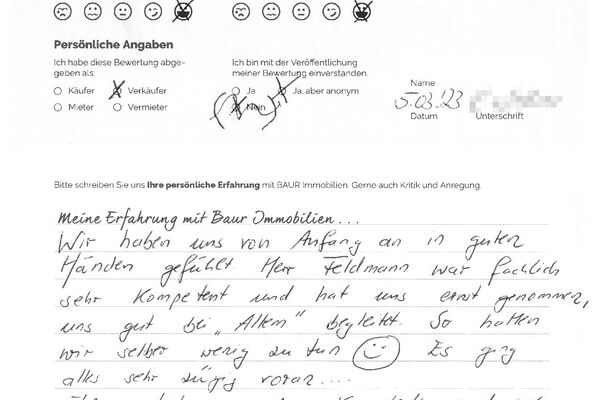 Persönliche Angaben
Ich habe diese Bewertung abge-
geben als:
Käufer
Verkäufer
Mieter
Vermieter
Ich bin mit der Veröffentlichung
meiner Bewertung einverstanden.
Ja
Ja, aber anonym
Nein
5.03.'23
Name
Datum
Unterschrift
Bitte schreiben Sie uns Ihre persönliche Erfahrung mit BAUR Immobilien. Gerne auch Kritik und Anregung.
Meine Erfahrung mit Baur Immobilien...
Wir haben uns von Anfang an in guten
Händen gefühlt Herr Feldmann war fachlich
sehr kompetent und hat uns ernst genommen,
uns gut bei „Allem" begleitet. So hatten
wir selber wenig zu tun Es ging
alles sehr zügig voran....